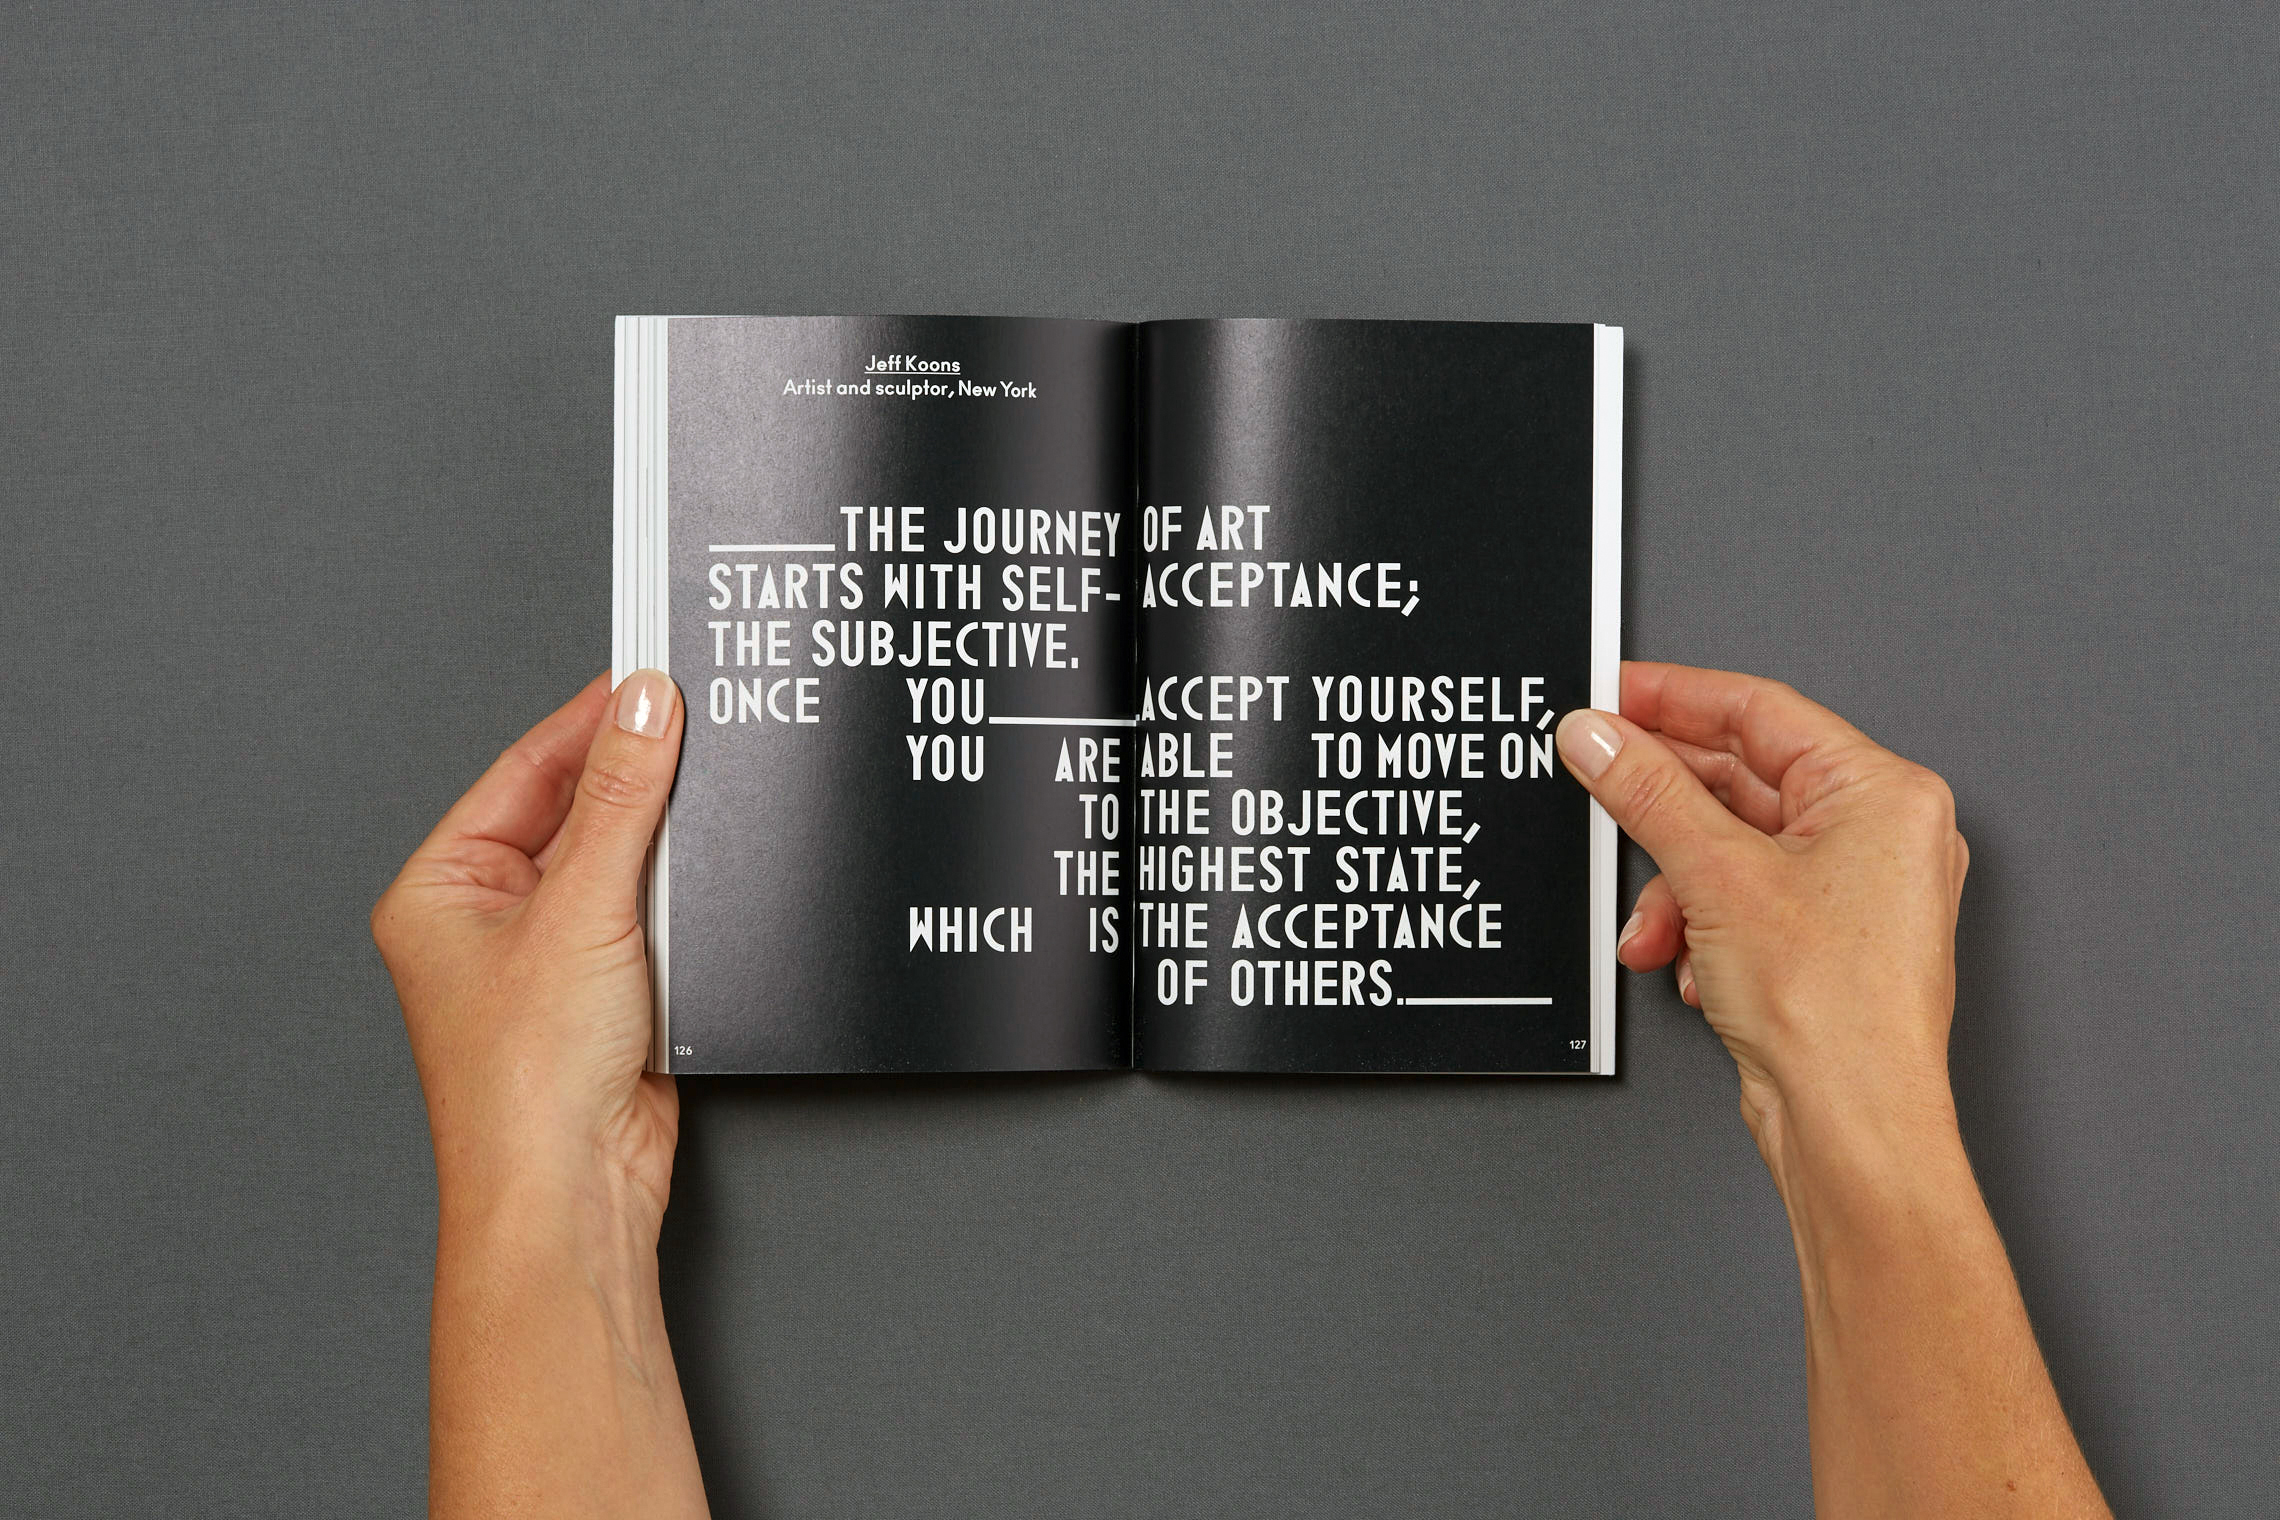 Jeff Koons
Artist and sculptor, New York
THE JOURNEY OF ART
STARTS WITH SELF-ACCEPTANCE;
THE SUBJECTIVE.
ONCE YOU ACCEPT YOURSELF,
YOU ARE ABLE TO MOVE ON
TO THE OBJECTIVE,
THE HIGHEST STATE,
WHICH IS THE ACCEPTANCE
OF OTHERS.
126
127